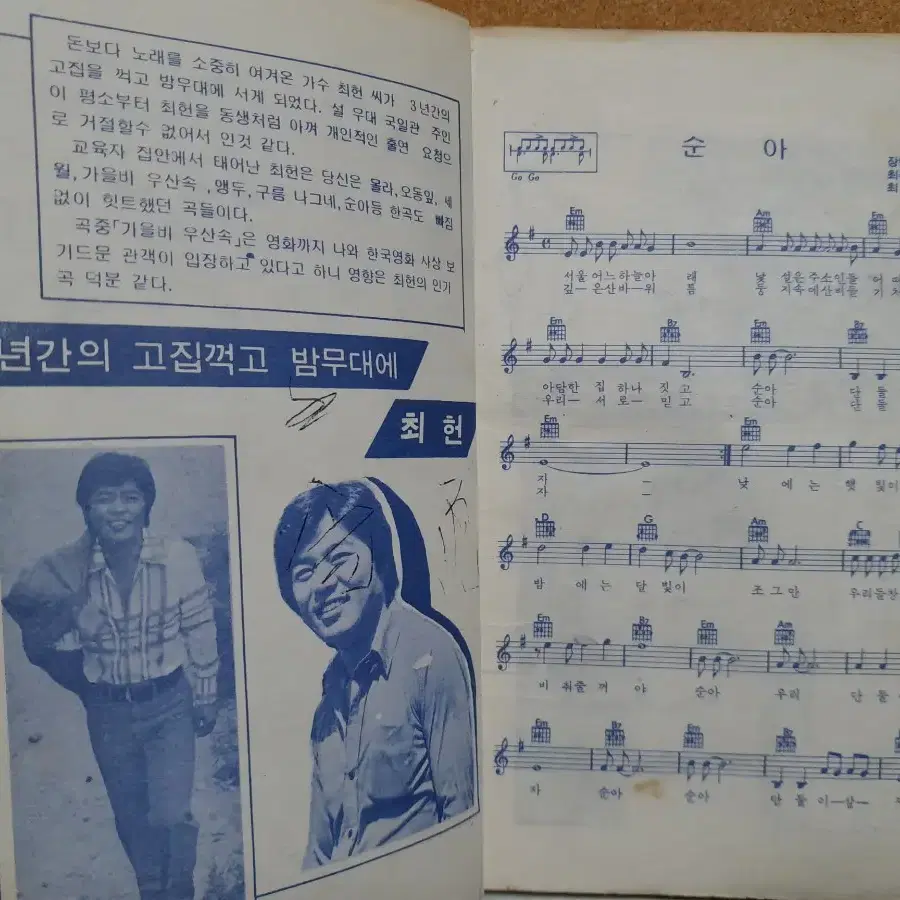 돈보다 노래를 소중히 여겨온 가수 최헌 씨가 3년간의
고집을 꺽고 밤무대에 서게 되었다. 설 우대 국일관 주인
이 평소부터 최헌을 동생처럼 아껴 개인적인 출연 요청으
로 거절할수 없어서 인것 같다.
교육자 집안에서 태어난 최헌은 당신은 몰라, 오동잎, 세
월, 가을비 우산속, 앵두, 구름 나그네, 순아등 한곡도 빠짐
없이 힛트했던 곡들이다.
곡중「가을비 우산속」은 영화까지 나와 한국영화 사상 보
기드문 관객이 입장하고 있다고 하니 영향은 최헌의 인기
곡 덕분 같다.
년간의 고집꺽고 밤무대에
최 헌
순 아
Go Go
Em Am Em
서울 어느하늘아 래 낯 설은주소인들 어
깊ー은산바ー위 틈
Em B7 Em B7
아담한 집 하나 짓고 순아 단 둘
우리ー 서로ー 믿고 순아 단 둘
Em Em
자 ー 낮 에 는 햇 빛이
자 ー
D G Am C
밤 에는 달 빛이 조그만 우리들창
Em B7 Em Am
비 춰줄꺼 야 순아 우리 단 둘
Em B7 Em B7
자 순아 순아 단 둘 이ー살ー